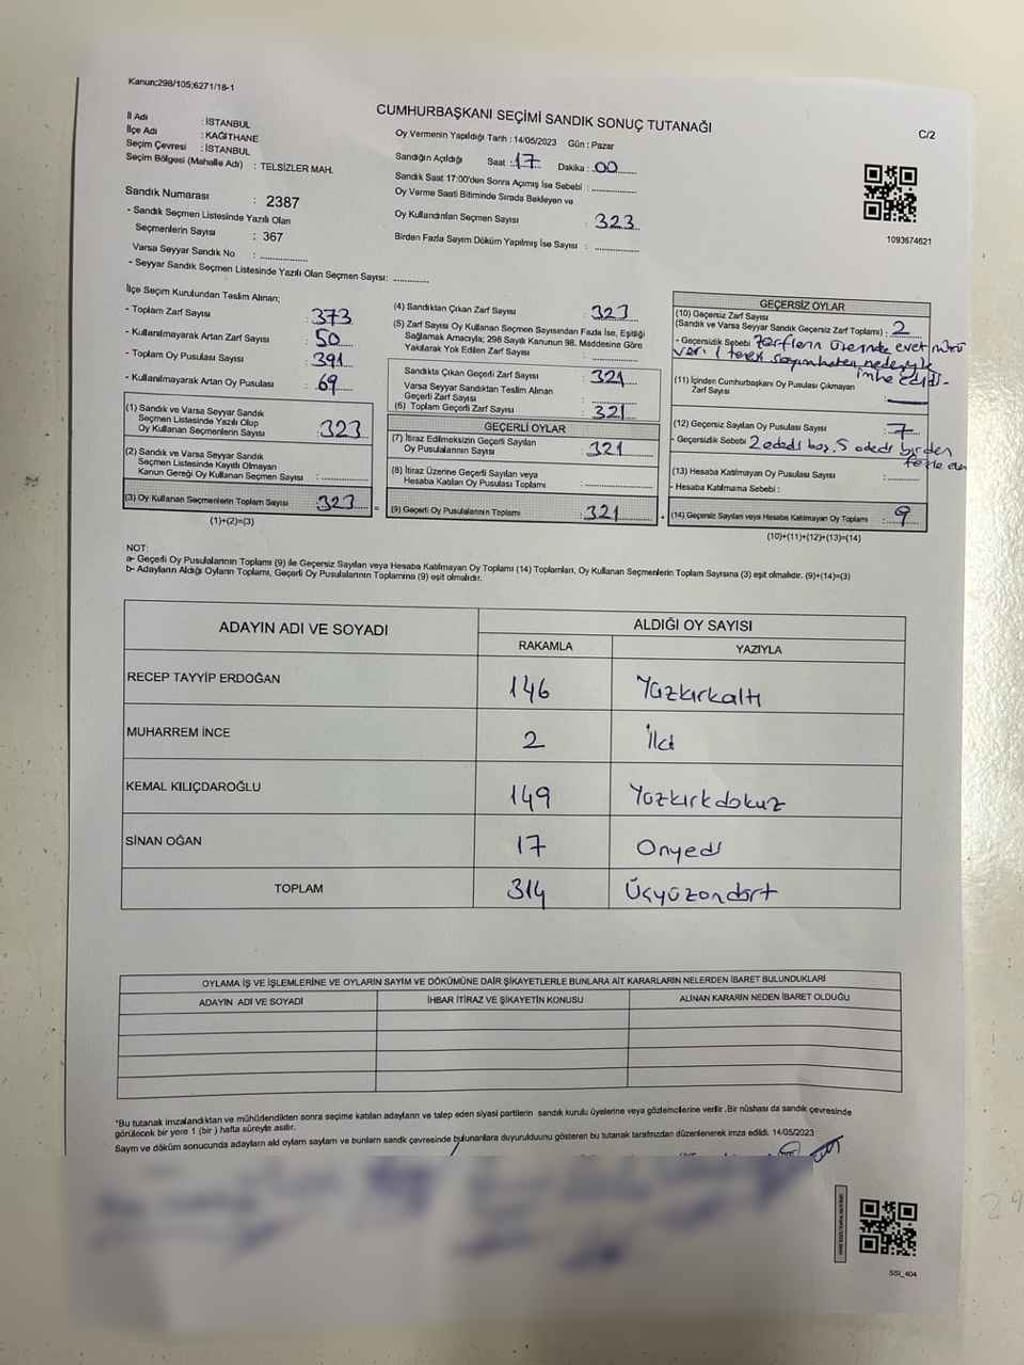 Kanun;298/105;6271/18-1
CUMHURBAŞKANI SEÇİMİ SANDIK SONUÇ TUTANAĞI
C/2
İl Adı : İSTANBUL
İlçe Adı : KAĞITHANE
Seçim Çevresi : İSTANBUL
Seçim Bölgesi (Mahalle Adı) : TELSİZLER MAH.
Sandık Numarası : 2387
- Sandık Seçmen Listesinde Yazılı Olan
Seçmenlerin Sayısı : 367
Varsa Seyyar Sandık No :
- Seyyar Sandık Seçmen Listesinde Yazılı Olan Seçmen Sayısı:
Oy Vermenin Yapıldığı Tarih : 14/05/2023 Gün : Pazar
Sandığın Açıldığı Saat : 17 Dakika : 00
Sandık Saat 17:00'den Sonra Açımış İse Sebebi :
Oy Verme Saati Bitiminde Sırada Bekleyen ve
Oy Kullandırılan Seçmen Sayısı : 323
Birden Fazla Sayım Döküm Yapılmış İse Sayısı :
1093674621
İlçe Seçim Kurulundan Teslim Alınan;
- Toplam Zarf Sayısı : 373
- Kullanılmayarak Artan Zarf Sayısı : 50
- Toplam Oy Pusulası Sayısı : 391
- Kullanılmayarak Artan Oy Pusulası : 69
(1) Sandık ve Varsa Seyyar Sandık
Seçmen Listesinde Yazılı Olup
Oy Kullanan Seçmenlerin Sayısı : 323
(2) Sandık ve Varsa Seyyar Sandık
Seçmen Listesinde Kayıtlı Olmayan
Kanun Gereği Oy Kullanan Seçmen Sayısı :
(3) Oy Kullanan Seçmenlerin Toplam Sayısı : 323
(1)+(2)=(3)
(4) Sandıktan Çıkan Zarf Sayısı : 323
(5) Zarf Sayısı Oy Kullanan Seçmen Sayısından Fazla İse, Eşitliği
Sağlamak Amacıyla; 298 Sayılı Kanunun 98. Maddesine Göre
Yakılarak Yok Edilen Zarf Sayısı :
Sandıkta Çıkan Geçerli Zarf Sayısı : 321
Varsa Seyyar Sandıktan Teslim Alınan
Geçerli Zarf Sayısı :
(6) Toplam Geçerli Zarf Sayısı : 321
GEÇERLİ OYLAR
(7) İtiraz Edilmeksizin Geçerli Sayılan
Oy Pusulalarının Sayısı : 321
(8) İtiraz Üzerine Geçerli Sayılan veya
Hesaba Katılan Oy Pusulası Toplamı :
(9) Geçerli Oy Pusulalarının Toplamı : 321
GEÇERSİZ OYLAR
(10) Geçersiz Zarf Sayısı
(Sandık ve Varsa Seyyar Sandık Geçersiz Zarf Toplamı) : 2
- Geçersizlik Sebebi Zarfların üzerinde evet mührü
var. nedeniyle
imha edildi-
(11) İçinden Cumhurbaşkanı Oy Pusulası Çıkmayan
Zarf Sayısı :
(12) Geçersiz Sayılan Oy Pusulası Sayısı : 7
- Geçersizlik Sebebi 2 adedi boş, 5 adedi birden
fazla
(13) Hesaba Katılmayan Oy Pusulası Sayısı :
- Hesaba Katılmama Sebebi :
(14) Geçersiz Sayılan veya Hesaba Katılmayan Oy Toplamı : 9
(10)+(11)+(12)+(13)=(14)
NOT:
a- Geçerli Oy Pusulalarının Toplamı (9) ile Geçersiz Sayılan veya Hesaba Katılmayan Oy Toplamı (14) Toplamları, Oy Kullanan Seçmenlerin Toplam Sayısına (3) eşit olmalıdır. (9)+(14)=(3)
b- Adayların Aldığı Oyların Toplamı, Geçerli Oy Pusulalarının Toplamına (9) eşit olmalıdır.
ADAYIN ADI VE SOYADI ALDIĞI OY SAYISI
RAKAMLA YAZIYLA
RECEP TAYYİP ERDOĞAN 146 Yüzkırkaltı
MUHARREM İNCE 2 İki
KEMAL KILIÇDAROĞLU 149 Yüzkırkdokuz
SİNAN OĞAN 17 Onyedi
TOPLAM 314 Üçyüzondört
OYLAMA İŞ VE İŞLEMLERİNE VE OYLARIN SAYIM VE DÖKÜMÜNE DAİR ŞİKAYETLERLE BUNLARA AİT KARARLARIN NELERDEN İBARET BULUNDUKLARI
ADAYIN ADI VE SOYADI İHBAR İTİRAZ VE ŞİKAYETİN KONUSU ALINAN KARARIN NEDEN İBARET OLDUĞU
*Bu tutanak imzalandıktan ve mühürlendikten sonra seçime katılan adayların ve talep eden siyasi partilerin sandık kurulu üyelerine veya gözlemcilerine verilir. Bir nüshası da sandık çevresinde
görülecek bir yere 1 (bir ) hafta süreyle asılır.
Sayım ve döküm sonucunda adayların aldı oyların sayılarını ve bunların sandık çevresinde bulunanlara duyurulduunu gösteren bu tutanak tarafımızdan düzenlenerek imza edildi. 14/05/2023
SSI_404